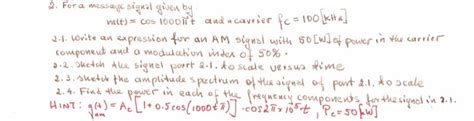 2. For a message signal given by
m(t) = cos 1000πt and a cavrier fc = 100 [KHz]
2.1. Write an expression for an AM signal with 50 [W] of power in the carrier
component and a modulation index of 50%.
2.2. Sketch the signal part 2.1. to scale versus time
2.3. Sketch the amplitude spectrum of the signal of part 2.1. to scale
2.4. Find the power in each of the frequency components for the signal in 2.1.
HINT: φ(t)am = Ac [1 + 0.5 cos(1000tπ)] · cos 2π × 10⁵ t, Pc = 50 [W]